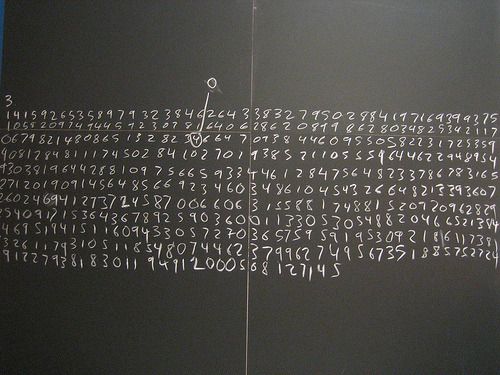 0
3
141592653589793238462643383279502884197169399375
105820974944592307816406286208998628034825342117
067982148086513282346647093844609550582231725359
408128481117450284102701938521105559644622948954
930381964428810975665933446128475648233786783165
271201909145648566923460348610454326648213393607
26024941273724587006606315588174881520720962829
254091715364367892590360011330530548820466521384
146951941511609433057270365759591953092186117381
932611793105118548074462379962749567351885752724
8912279381830119491 2000568127145